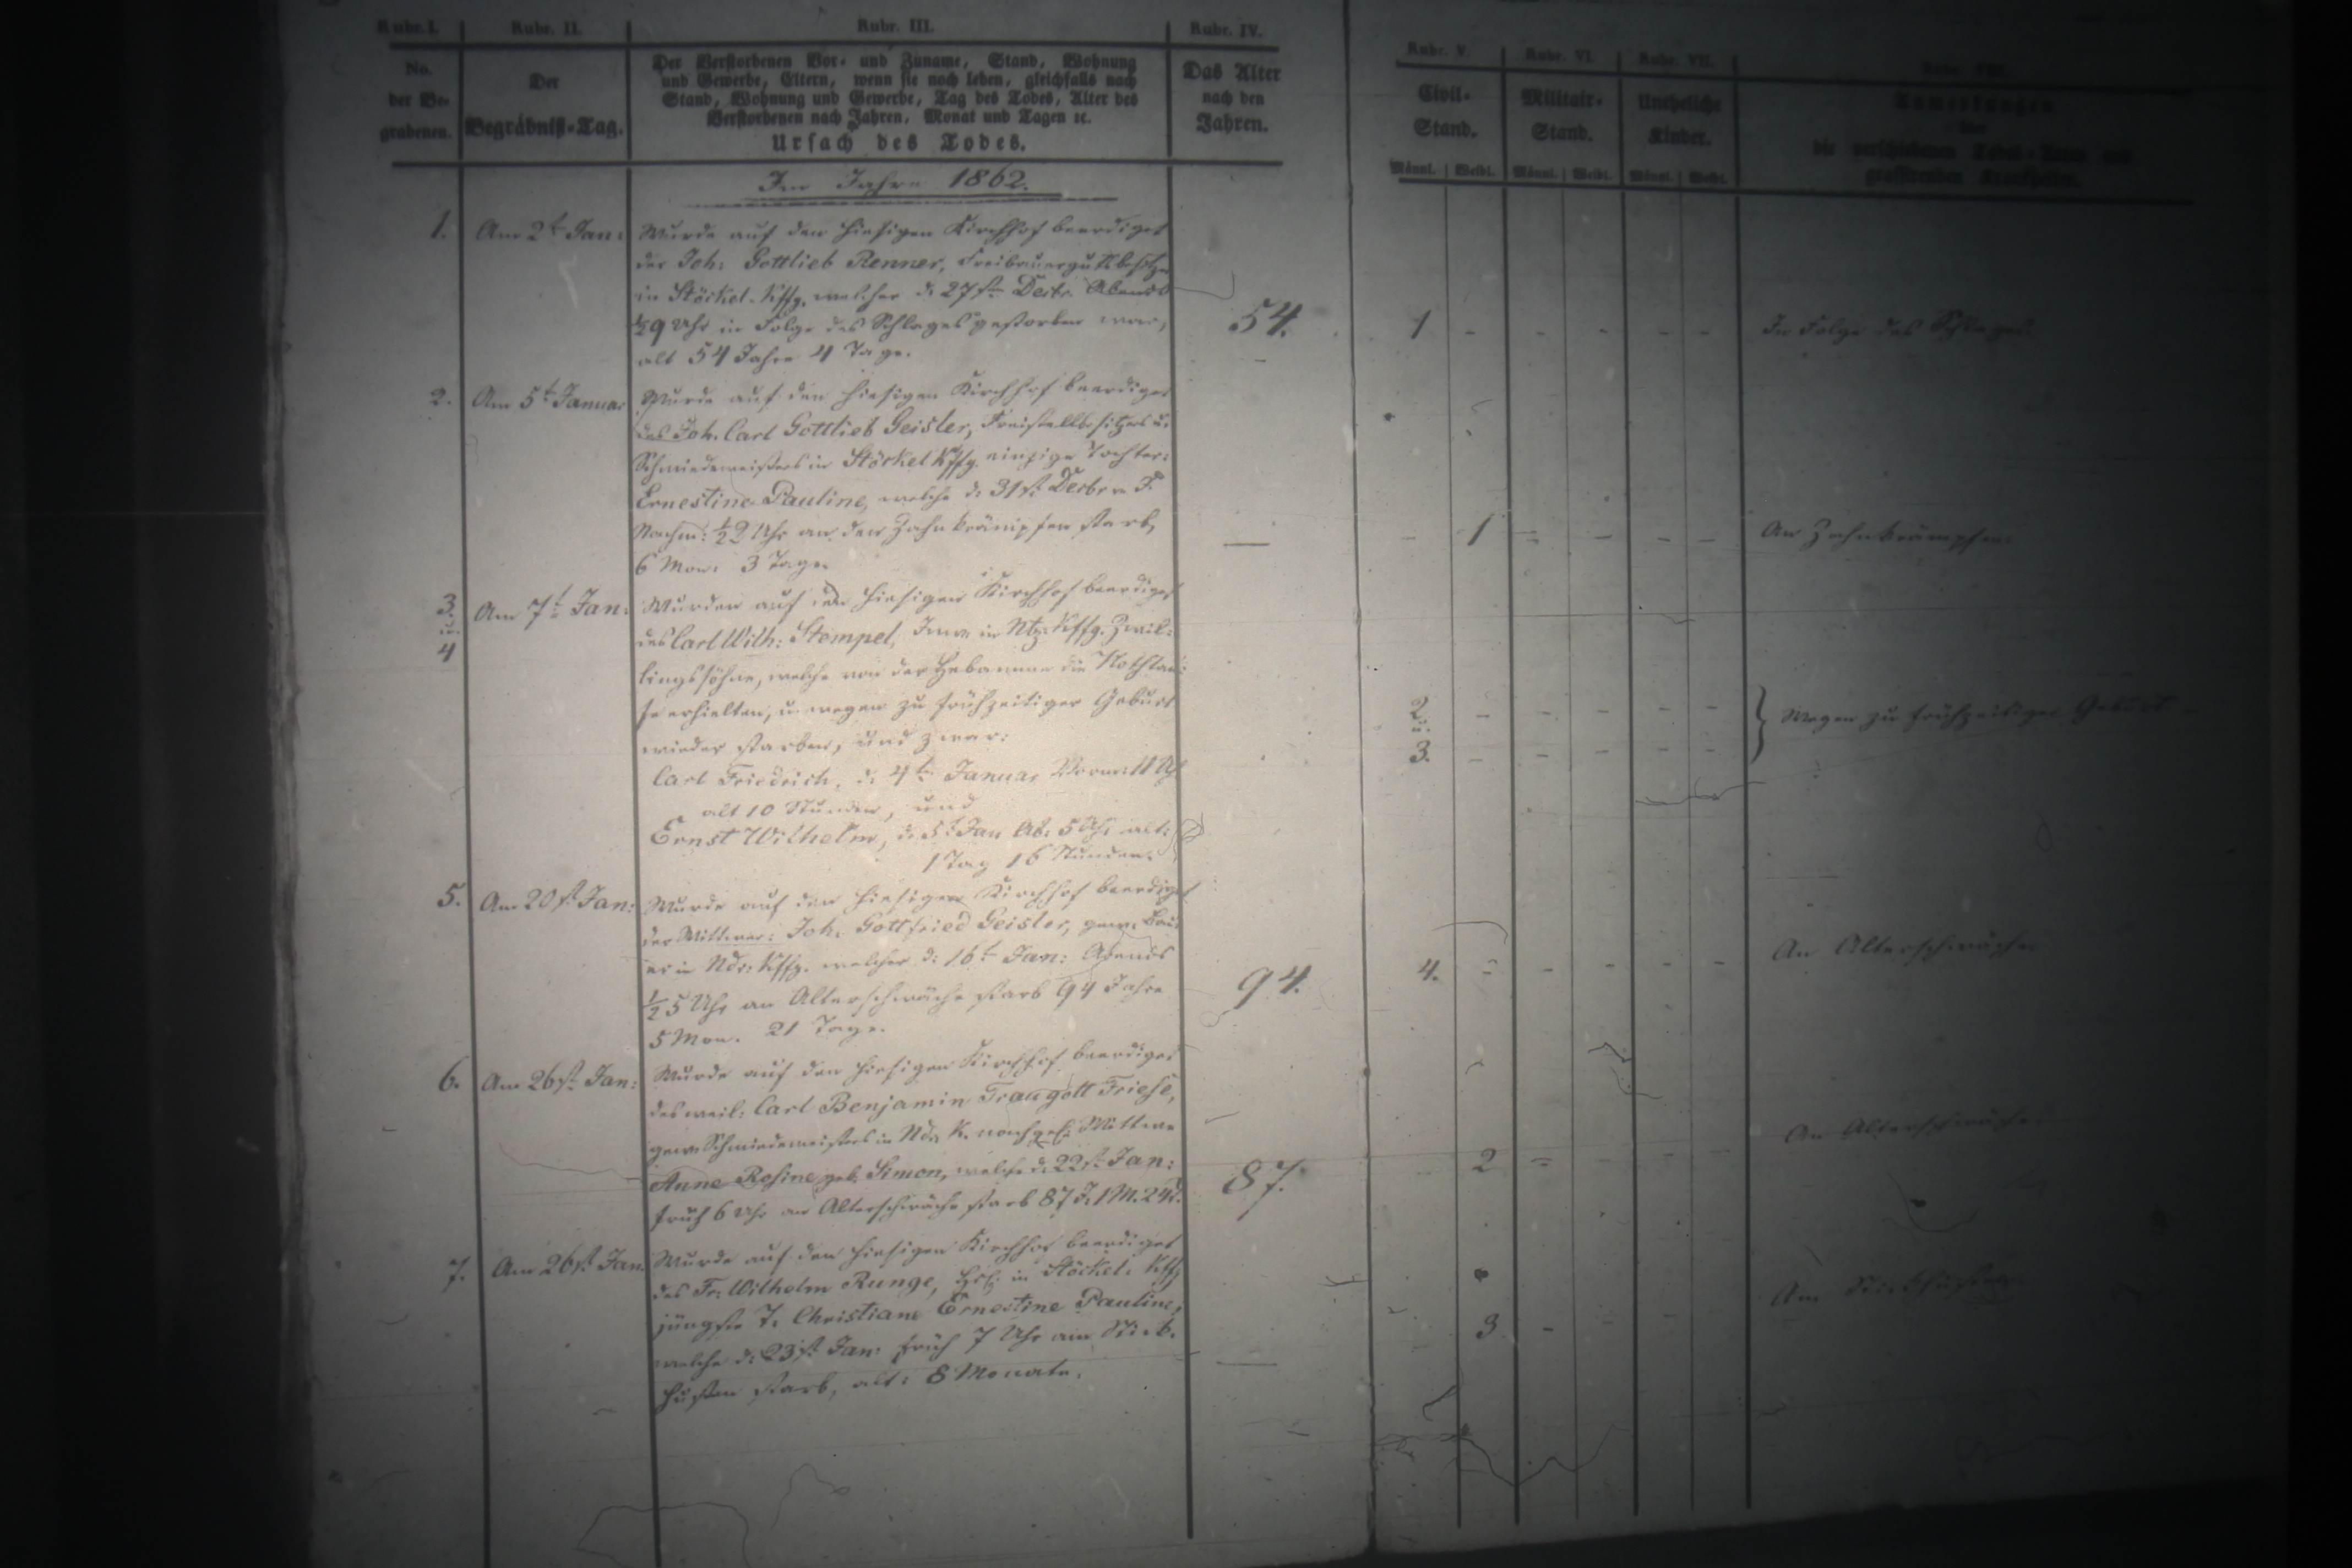 Rubr. I. Rubr. II. Rubr. III. Rubr. IV. Rubr. V. Rubr. VI. Rubr. VII. Rubr. VIII.
No.
der Be-
grabenen.
Der
Begräbniß-Tag.
Der Verstorbenen Vor- und Zuname, Stand, Wohnung
und Gewerbe, Eltern, wenn sie noch leben, gleichfalls nach
Stand, Wohnung und Gewerbe, Tag des Todes, Alter des
Verstorbenen nach Jahren, Monat und Tagen ꝛc.
Ursach des Todes.
Das Alter
nach den
Jahren.
Civil-
Stand.
Männl. Weibl.
Militair-
Stand.
Männl. Weibl.
Uneheliche
Kinder.
Männl. Weibl.
Anmerkungen
über
die verschiedenen Todes-Arten und
grassirenden Krankheiten.
Im Jahre 1862.
1. Am 2t Jan:
Wurde auf den hiesigen Kirchhof beerdiget
der Joh: Gottlieb Renner, Freibauergutsbesitzer
in Stöckel-Kffg. welcher d: 27st Decbr. Abends
1/2 9 Uhr in Folge des Schlages gestorben war,
alt 54 Jahre 4 Tage.
54. 1 - - - - -
In Folge des Schlages.
2. Am 5t Januar
Wurde auf den hiesigen Kirchhof beerdiget
des Joh. Carl Gottlieb Geisler, Freistellbesitzers u.
Schmiedemeisters in Stöckel Kffg. einzige Tochter:
Ernestine Pauline, welche d: 31st Decbr v. J.
Nachm: 1/2 2 Uhr an den Zahnkrämpfen starb,
6 Mon: 3 Tage.
— - 1 - - - -
An Zahnkrämpfen.
3.
u.
4
Am 7t Jan:
Wurden auf den hiesigen Kirchhof beerdiget
des Carl Wilh: Stempel, Inw. in Ntz: Kffg. Zwil-
lingssöhne, welche von der Hebamme die Nothtau-
fe erhielten, u. wegen zu frühzeitiger Geburt
wieder starben, und zwar:
Carl Friedrich, d: 4t Januar Vorm: 11 Uhr
alt 10 Stunden, und
Ernst Wilhelm, d: 5t Jan Ab: 5 Uhr alt:
1 Tag 16 Stunden.
2. - - - - -
u.
3. - - - - -
Wegen zu frühzeitiger Geburt
5. Am 20st Jan:
Wurde auf den hiesigen Kirchhof beerdiget
der Wittwer: Joh. Gottfried Geisler, gew. Bau-
er in Ndr: Kffg. welcher d: 16t Jan: Abends
1/2 5 Uhr an Alterschwäche starb 94 Jahre
5 Mon. 21 Tage.
94. 4. - - - - -
An Alterschwäche
6. Am 26st Jan:
Wurde auf den hiesigen Kirchhof beerdiget
des weil: Carl Benjamin Traugott Friese,
gew. Schmiedemeisters in Ndr K. nachgel: Wittwe
Anne Rosine geb. Simon, welche d: 22st Jan:
früh 6 Uhr an Alterschwäche starb 87 J. 1 M. 24 T.
87. 2 - - - -
An Alterschwäche
7. Am 26st Jan.
Wurde auf den hiesigen Kirchhof beerdiget
des Fr: Wilhelm Runge, in Stöckel: Kffg
jüngste T. Christiane Ernestine Pauline,
welche d: 23st Jan: früh 7 Uhr am Stick-
husten starb, alt: 8 Monate.
— 3 - - -
Am Stickhusten